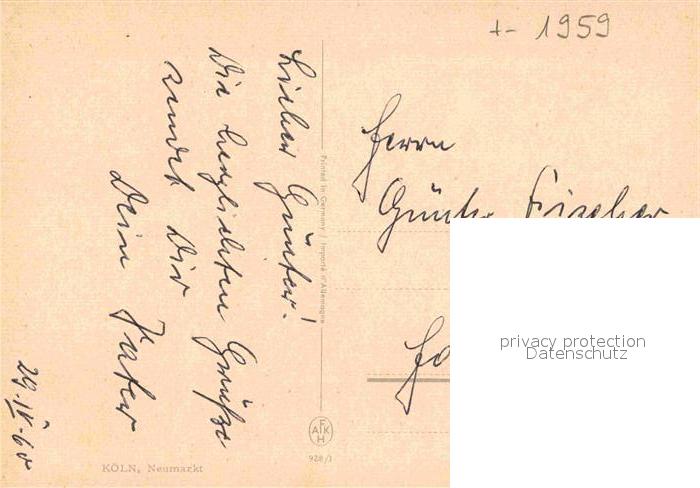 +- 1959
Lieber Günter!
Die herzlichsten Grüße
sendet Dir
Dein Vater
29.IV.60
Herrn
Günter Fischer
Printed in Germany / Importé d'Allemagne
AFKH
928/1
KÖLN, Neumarkt
privacy protection
Datenschutz